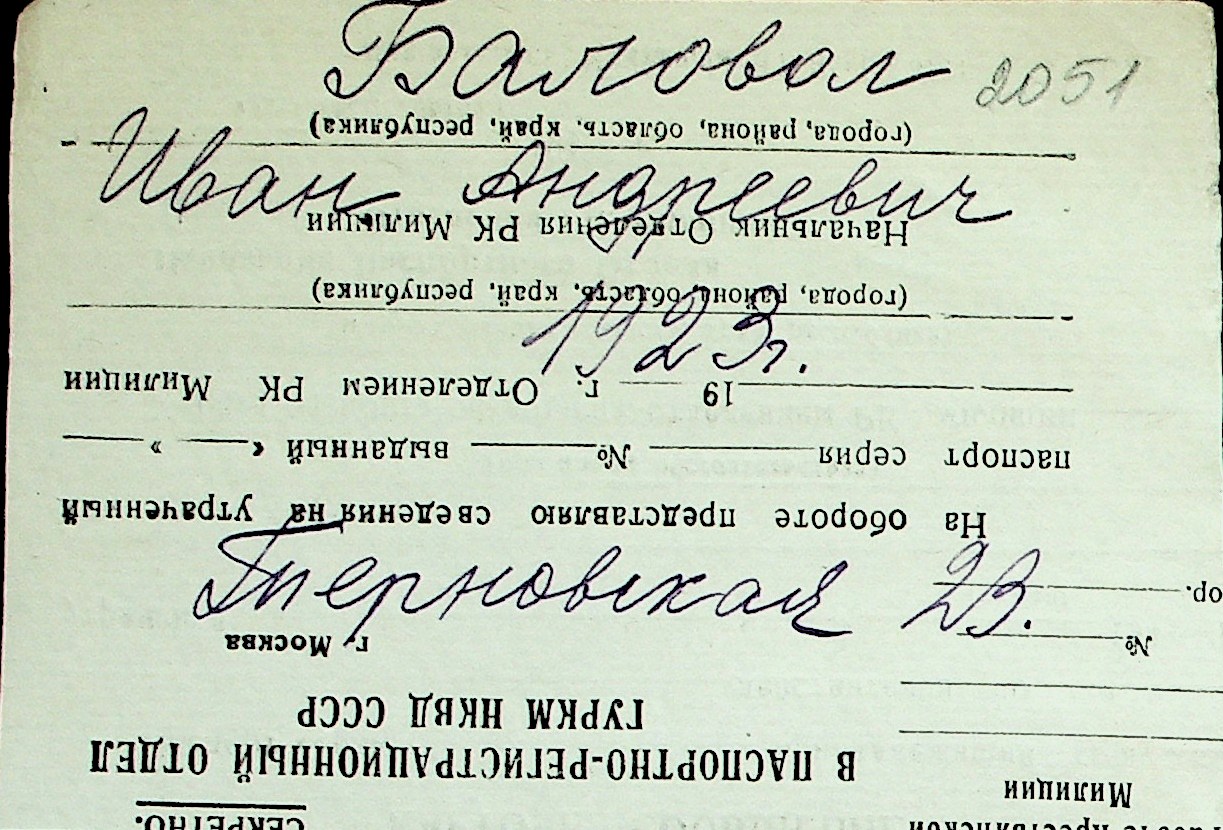 Баловол 2051
Иван Андреевич
1923г.
Терновская 23.
СЕКРЕТНО.
Милиции
В ПАСПОРТНО-РЕГИСТРАЦИОННЫЙ ОТДЕЛ
ГУРКМ НКВД СССР
№ г. Москва
На обороте представляю сведения на утраченный
паспорт серия № выданный « »
19 г. Отделением РК Милиции
(города, района, область, край, республика)
Начальник Отделения РК Милиции
(города, района, область, край, республика)